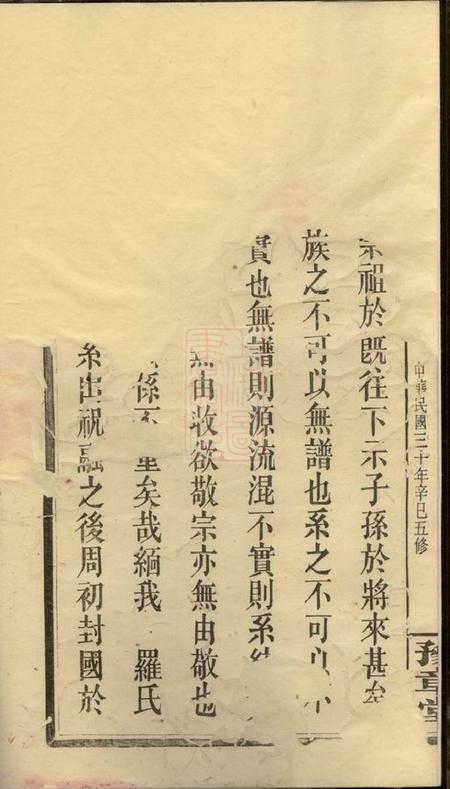 中華民國三十年辛巳五修
豫章堂
宗祖於既往下示子孫於將來甚矣
族之不可以無譜也系之不可以不
實也無譜則源流混不實則系
無由收欲敬宗亦無由敬也
係不重矣哉緬我 羅氏
系出祝融之後周初封國於